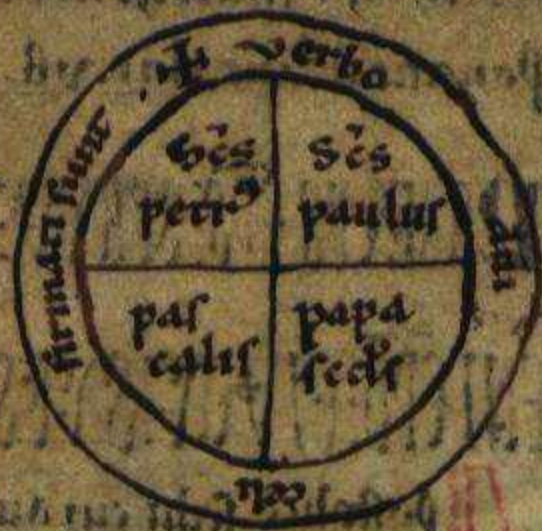 ✠ verbo dni celi firmati sunt
Sc̄s petrꝰ
Sc̄s paulus
pas calis
papa scd̄s